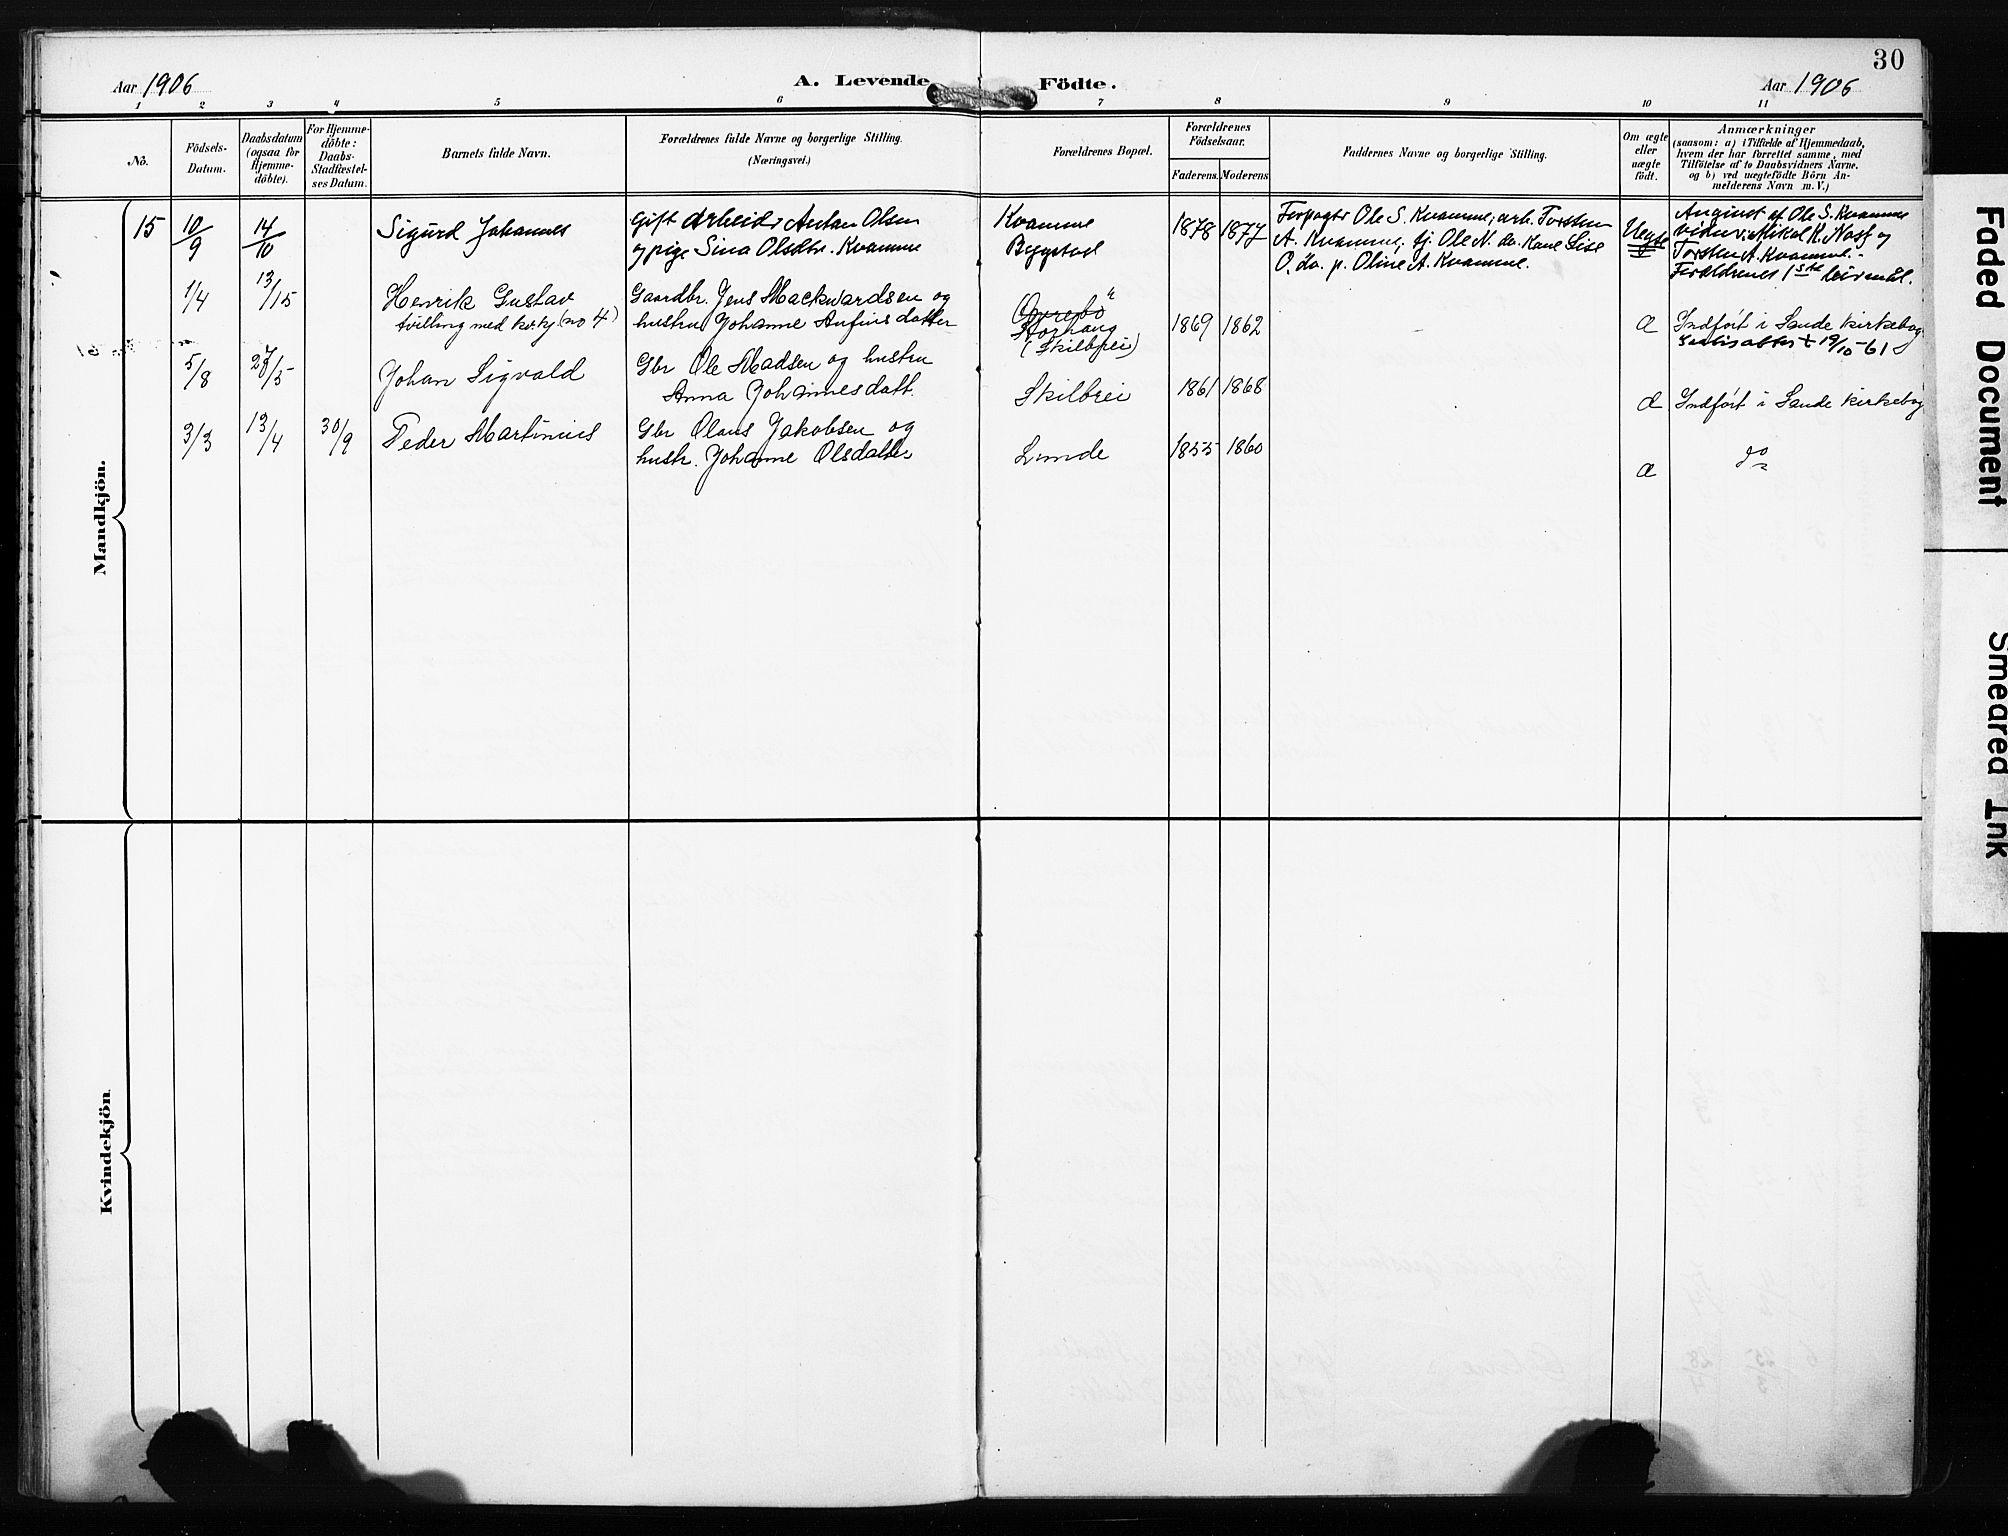 30
Aar 1906
A. Levende Födte.
Aar 1906
1 2 3 4 5 6 7 8 9 10 11
No.
Födsels-
Datum.
Daabsdatum
(ogsaa for
Hjemme-
döbte).
For Hjemme-
döbte:
Daabs-
Stadfæstel-
ses Datum.
Barnets fulde Navn.
Forældrenes fulde Navne og borgerlige Stilling.
(Næringsvei.)
Forældrenes Bopæl.
Forældrenes
Födselsaar.
Faderens. Moderens
Faddernes Navne og borgerlige Stilling.
Om ægte
eller
uægte
födt.
Anmærkninger
(saasom: a) i Tilfælde af Hjemmedaab,
hvem der har forrettet samme, med
Tilföielse af to Daabsvidners Navne.
og b) ved uægtefödte Börn An-
melderens Navn m. V.)
Mandkjön.
15 10/9 14/10 Sigurd Johannes
Gift Arbeider Anton Olsen
og pige Sina Olsdtr. Kvamme
Kvamme
Bygstad
1878 1877
Forpagter Ole S. Kvamme; arb. Torsten
A. Kvamme, tj. Ole N. do. Kone Lise
O. do. p. Oline A. Kvamme.
Uegte
Angivet af Ole S. Kvamme
vidner: Mikal K. og
Torsten A. Kvamme.-
Forældrenes 1ste leiermål.
1/4 13/15 Henrik Gustav
tvilling med kv.kj. (no 4)
Gaardbr. Jens Mackvardsen og
hustru Johanne Anfinsdatter
Øvrebö
Storhaug
(Skilbrei)
1869 1862
æ
Indfört i Sande kirkebog
† 19/10-61
5/8 27/5 Johan Sigvald
Gbr Ole Madsen og hustru
Anna Johannesdatt.
Skilbrei
1861 1868
æ
Indfört i Sande kirkebog
3/3 13/4 30/9 Peder Martinius
Gbr Olaus Jakobsen og
hustr. Johanne Olsdatter
Lunde
1855 1860
æ
do
Kvindekjön.
Faded Document
Smeared Ink